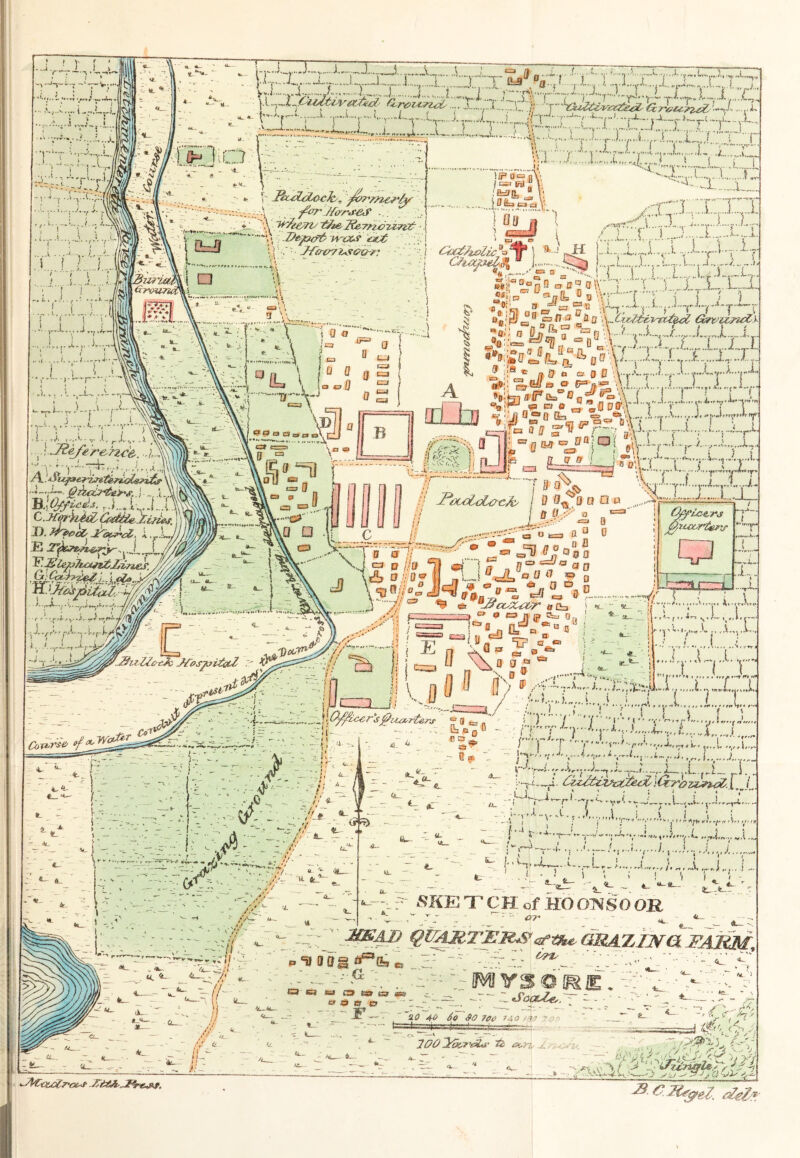 Cultivated Ground
Cultivated Ground
Paddock, formerly
for Horses
when the Remount
Depot was at
Hoonsoor.
Catholic
Chapel
H
Water Course
Burial
Ground
Compound
Cultivated Ground
A
D
B
Reference.
A. Superintendents
Quarters.
B. Offices.
C. Horned Cattle Lines.
D. Wood Yard.
E. Tannery
F. Elephant Lines.
G. Camel do.
H. Hospital
Paddock
C
Officers
Quarters
Bazar
E
Bullock Hospital
Officer's Quarters
Course of a Water Conduit at present dry,
Grazing Ground
Cultivated Ground
SKETCH of HOONSOOR
or
HEAD QUARTERS of the GRAZING FARM,
in
MYSORE.
G
F
Scale.
20 40 60 80 100 140
100 Yards to an Inch.
Jungle
Madras Lith. Press.
B. C. Regel. delt.